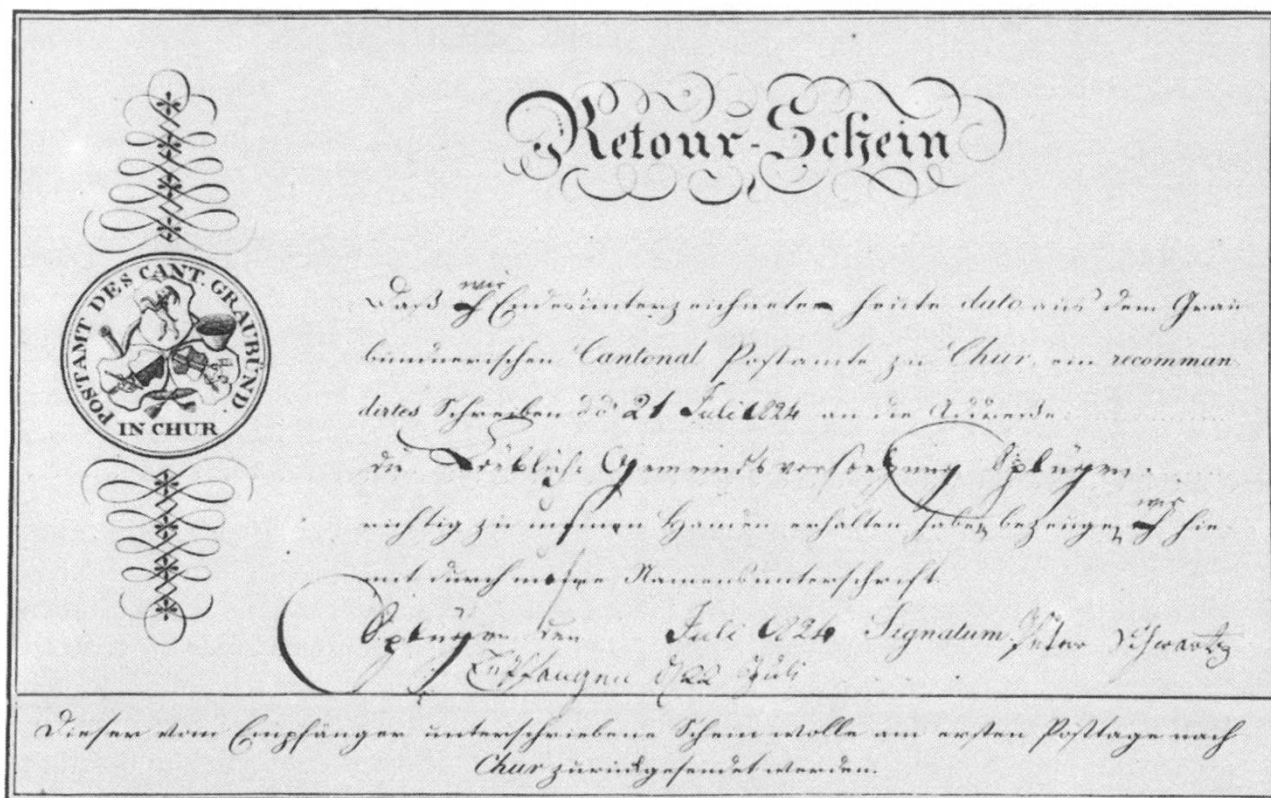 Retour-Schein
POSTAMT DES CANT. GRAUBÜND.
IN CHUR
wir
Daß ich Endesunterzeichneter heute dato aus dem Grau
bündnerischen Cantonal Postamte zu Chur, ein recomman
dirtes Schreiben dd° 21 Juli 1824 an die Adresse:
die Löbliche Gemeindsvorsteh̶ung Splügen.
wir
richtig zu meinen Handen erhalten haben bezeugen ich hie-
mit durch meine Namensunterschrift.
Splügen den Juli 1824 Signatum Peter Schwartz
Empfangen d 22 Juli
Dieser vom Empfänger unterschriebene Schein wolle am ersten Posttage nach
Chur zurückgesendet werden.